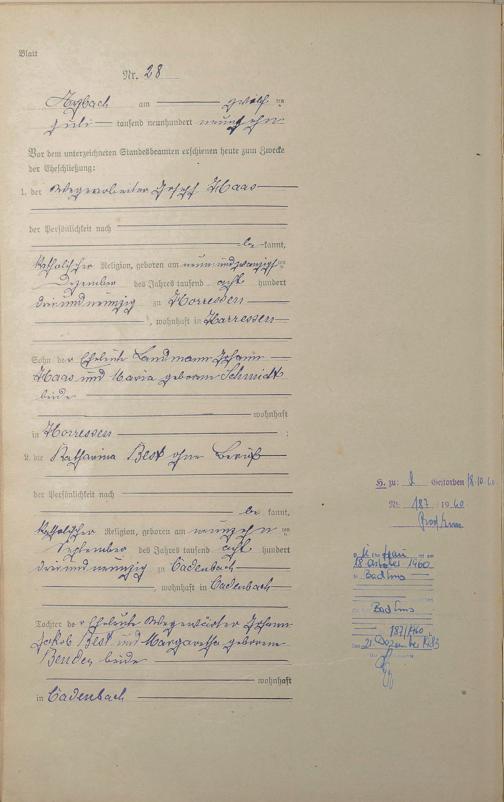 Blatt
Nr. 28
Arzbach am zwölf ten
Juli tausend neunhundert neunzehn
Vor dem unterzeichneten Standesbeamten erschienen heute zum Zwecke
der Eheschließung:
1. der Wegearbeiter Joseph Haas
der Persönlichkeit nach
be kannt,
katholischer Religion, geboren am neunundzwanzigsten
Dezember des Jahres tausend acht hundert
dreiundneunzig zu Horressen
, wohnhaft in Horressen
Sohn der Eheleute Landmann Johann
Haas und Maria geborene Schmidt
beide
wohnhaft
in Horressen ;
2. die Katharina Best ohne Beruf
der Persönlichkeit nach
be kannt,
katholischer Religion, geboren am neunzehn ten
September des Jahres tausend acht hundert
dreiundneunzig zu Cadenbach
, wohnhaft in Cadenbach
Tochter der Eheleute Wegewärter Johann
Jakob Best und Margaretha geborene
Benden beide
wohnhaft
in Cadenbach
H. zu: 2 Gestorben 18.10.60
Nr. 187 1960
Bad Ems
18. Oktober 1960
Bad Ems
Bad Ems
187/1960
21. Dezember